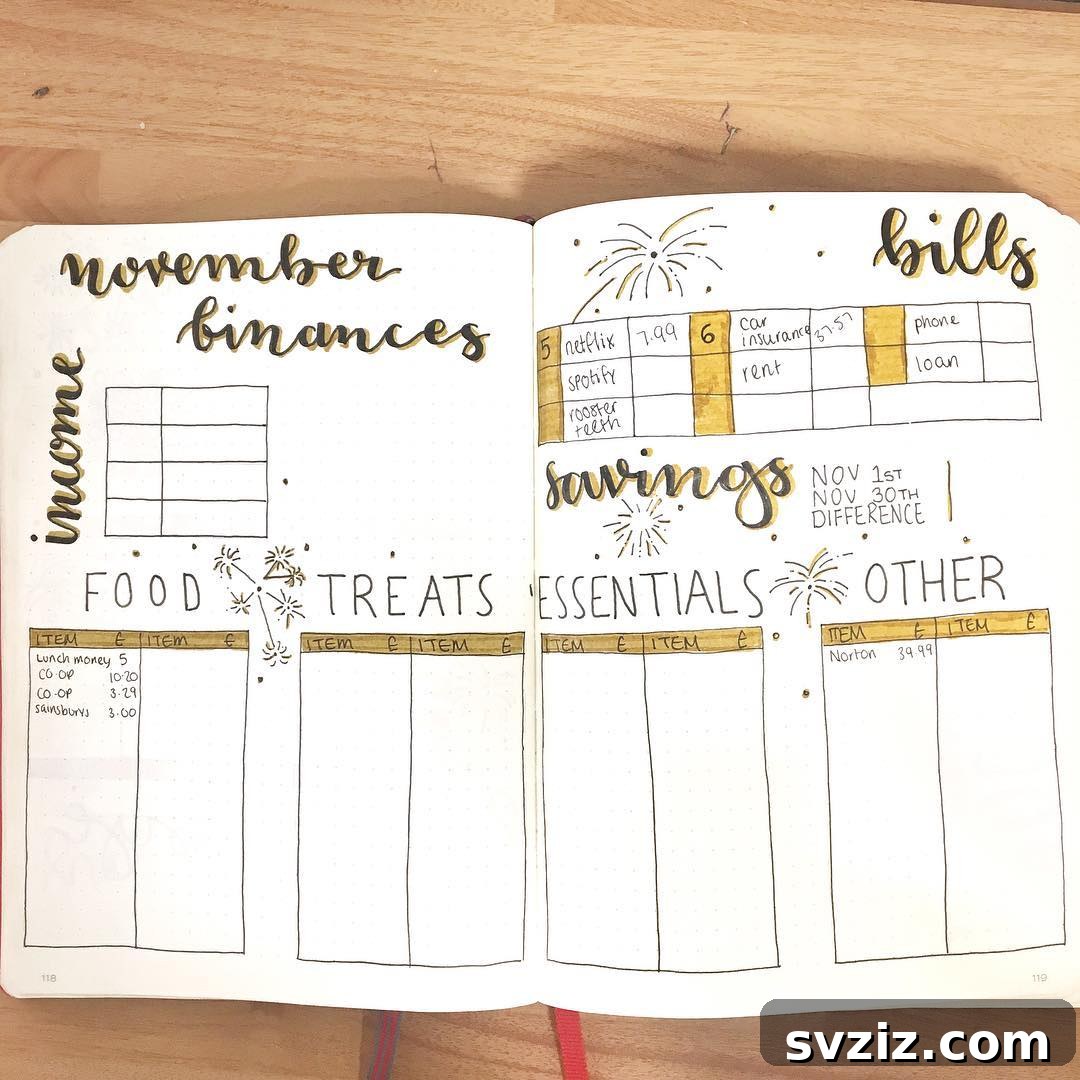 november
binances
income
FOOD
TREATS
ITEM £ ITEM £
Lunch money 5
CO-OP 10.20
CO-OP 3.29
sainsburys 3.00
ITEM £ ITEM £
118
bills
5 netflix 7.99 6 car insurance 37.57 phone
spotify rent loan
rooster teeth
savings
NOV 1ST
NOV 30TH
DIFFERENCE
ESSENTIALS
OTHER
ITEM £ ITEM £
ITEM £ ITEM £
Norton 39.99
119
svziz.com